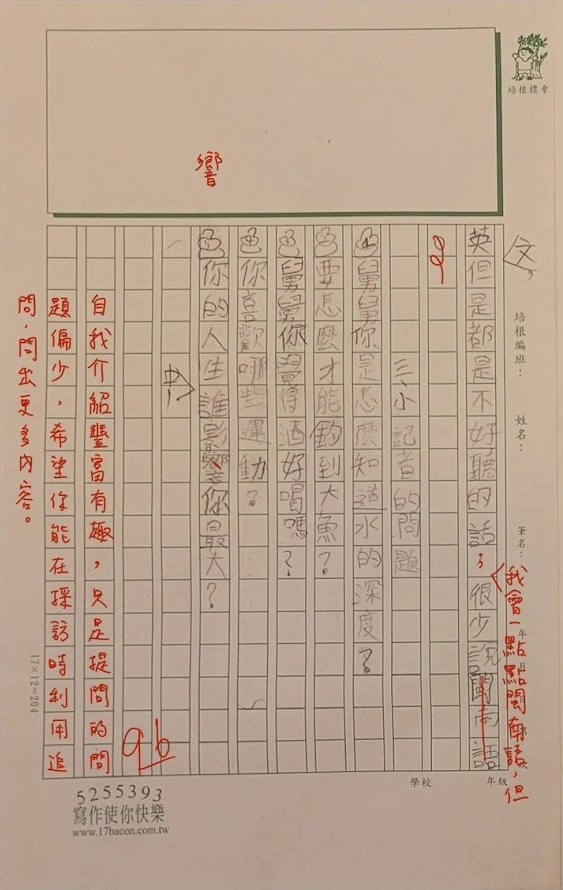 響
培根標章
文
英但是都是不好聽的話，很少說閩南話
我會一點點閩南語，但
三、小記者的問題
舅舅你是怎麼知道水的深度？
要怎麼才能釣到大魚？
舅舅你覺得酒好喝嗎？
你喜歡哪些運動？
你的人生誰影響你最大？
中
96
自我介紹豐富有趣，只是提問的問
題偏少，希望你能在採訪時利用追
問，問出更多內容。
培根編班：
姓名：
筆名：
17×12=204
學校
年級
5255393
寫作使你快樂
www.17bacon.com.tw